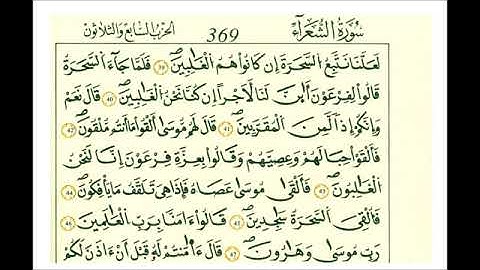 سُورَةُ الشُّعَرَآءِ 369 الحزب السابع والثلاثون
لَعَلَّنَا نَتَّبِعُ السَّحَرَةَ إِن كَانُوا هُمُ الْغَٰلِبِينَ فَلَمَّا جَآءَ السَّحَرَةُ
قَالُوا لِفِرْعَوْنَ أَئِنَّ لَنَا لَأَجْرًا إِن كُنَّا نَحْنُ الْغَٰلِبِينَ قَالَ نَعَمْ
وَإِنَّكُمْ إِذًا لَّمِنَ الْمُقَرَّبِينَ قَالَ لَهُم مُّوسَىٰ أَلْقُوا مَا أَنتُم مُّلْقُونَ
فَأَلْقَوْا حِبَالَهُمْ وَعِصِيَّهُمْ وَقَالُوا بِعِزَّةِ فِرْعَوْنَ إِنَّا لَنَحْنُ
الْغَٰلِبُونَ فَأَلْقَىٰ مُوسَىٰ عَصَاهُ فَإِذَا هِيَ تَلَقَّفُ مَا يَأْفِكُونَ
فَأُلْقِيَ السَّحَرَةُ سَٰجِدِينَ قَالُوا ءَامَنَّا بِرَبِّ الْعَٰلَمِينَ
رَبِّ مُوسَىٰ وَهَٰرُونَ قَالَ ءَا۬مَنتُمْ لَهُ قَبْلَ أَنْ ءَاذَنَ لَكُمْ